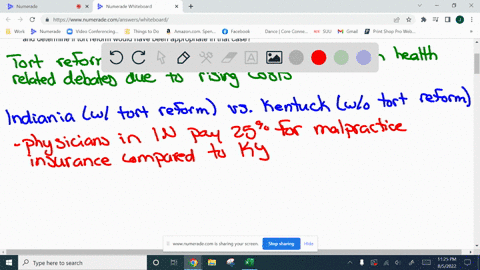 Numerade
Numerade Whiteboard
numerade.com/answers/whiteboard/
Work
Numerade
Video Conferencing...
Times of the Day
Amazon.com. Spen...
Facebook
SUU
Gmail
Print Shop Pro Web...
and determine if tort reform would have been appropriate in that case?
Tort refor health
related debated due to rising costs
Indiania (w/ tort reform) vs. Kentuck (w/o tort reform)
- physicians in IN pay 25% for malpractice
insurance compared to KY
www.numerade.com is sharing your screen.
Stop sharing
Hide
Type here to search
11:25 PM
8/5/2022